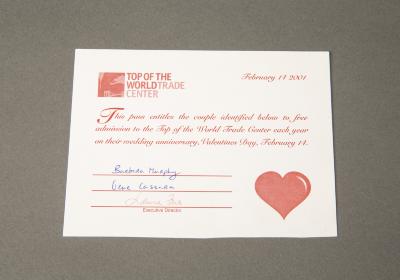 TOP OF THE
WORLD TRADE
CENTER
February 14 2001
This pass entitles the couple identified below to free
admission to the Top of the World Trade Center each year
on their wedding anniversary, Valentines Day, February 14.
Barbara Murphy
Gene
Executive Director